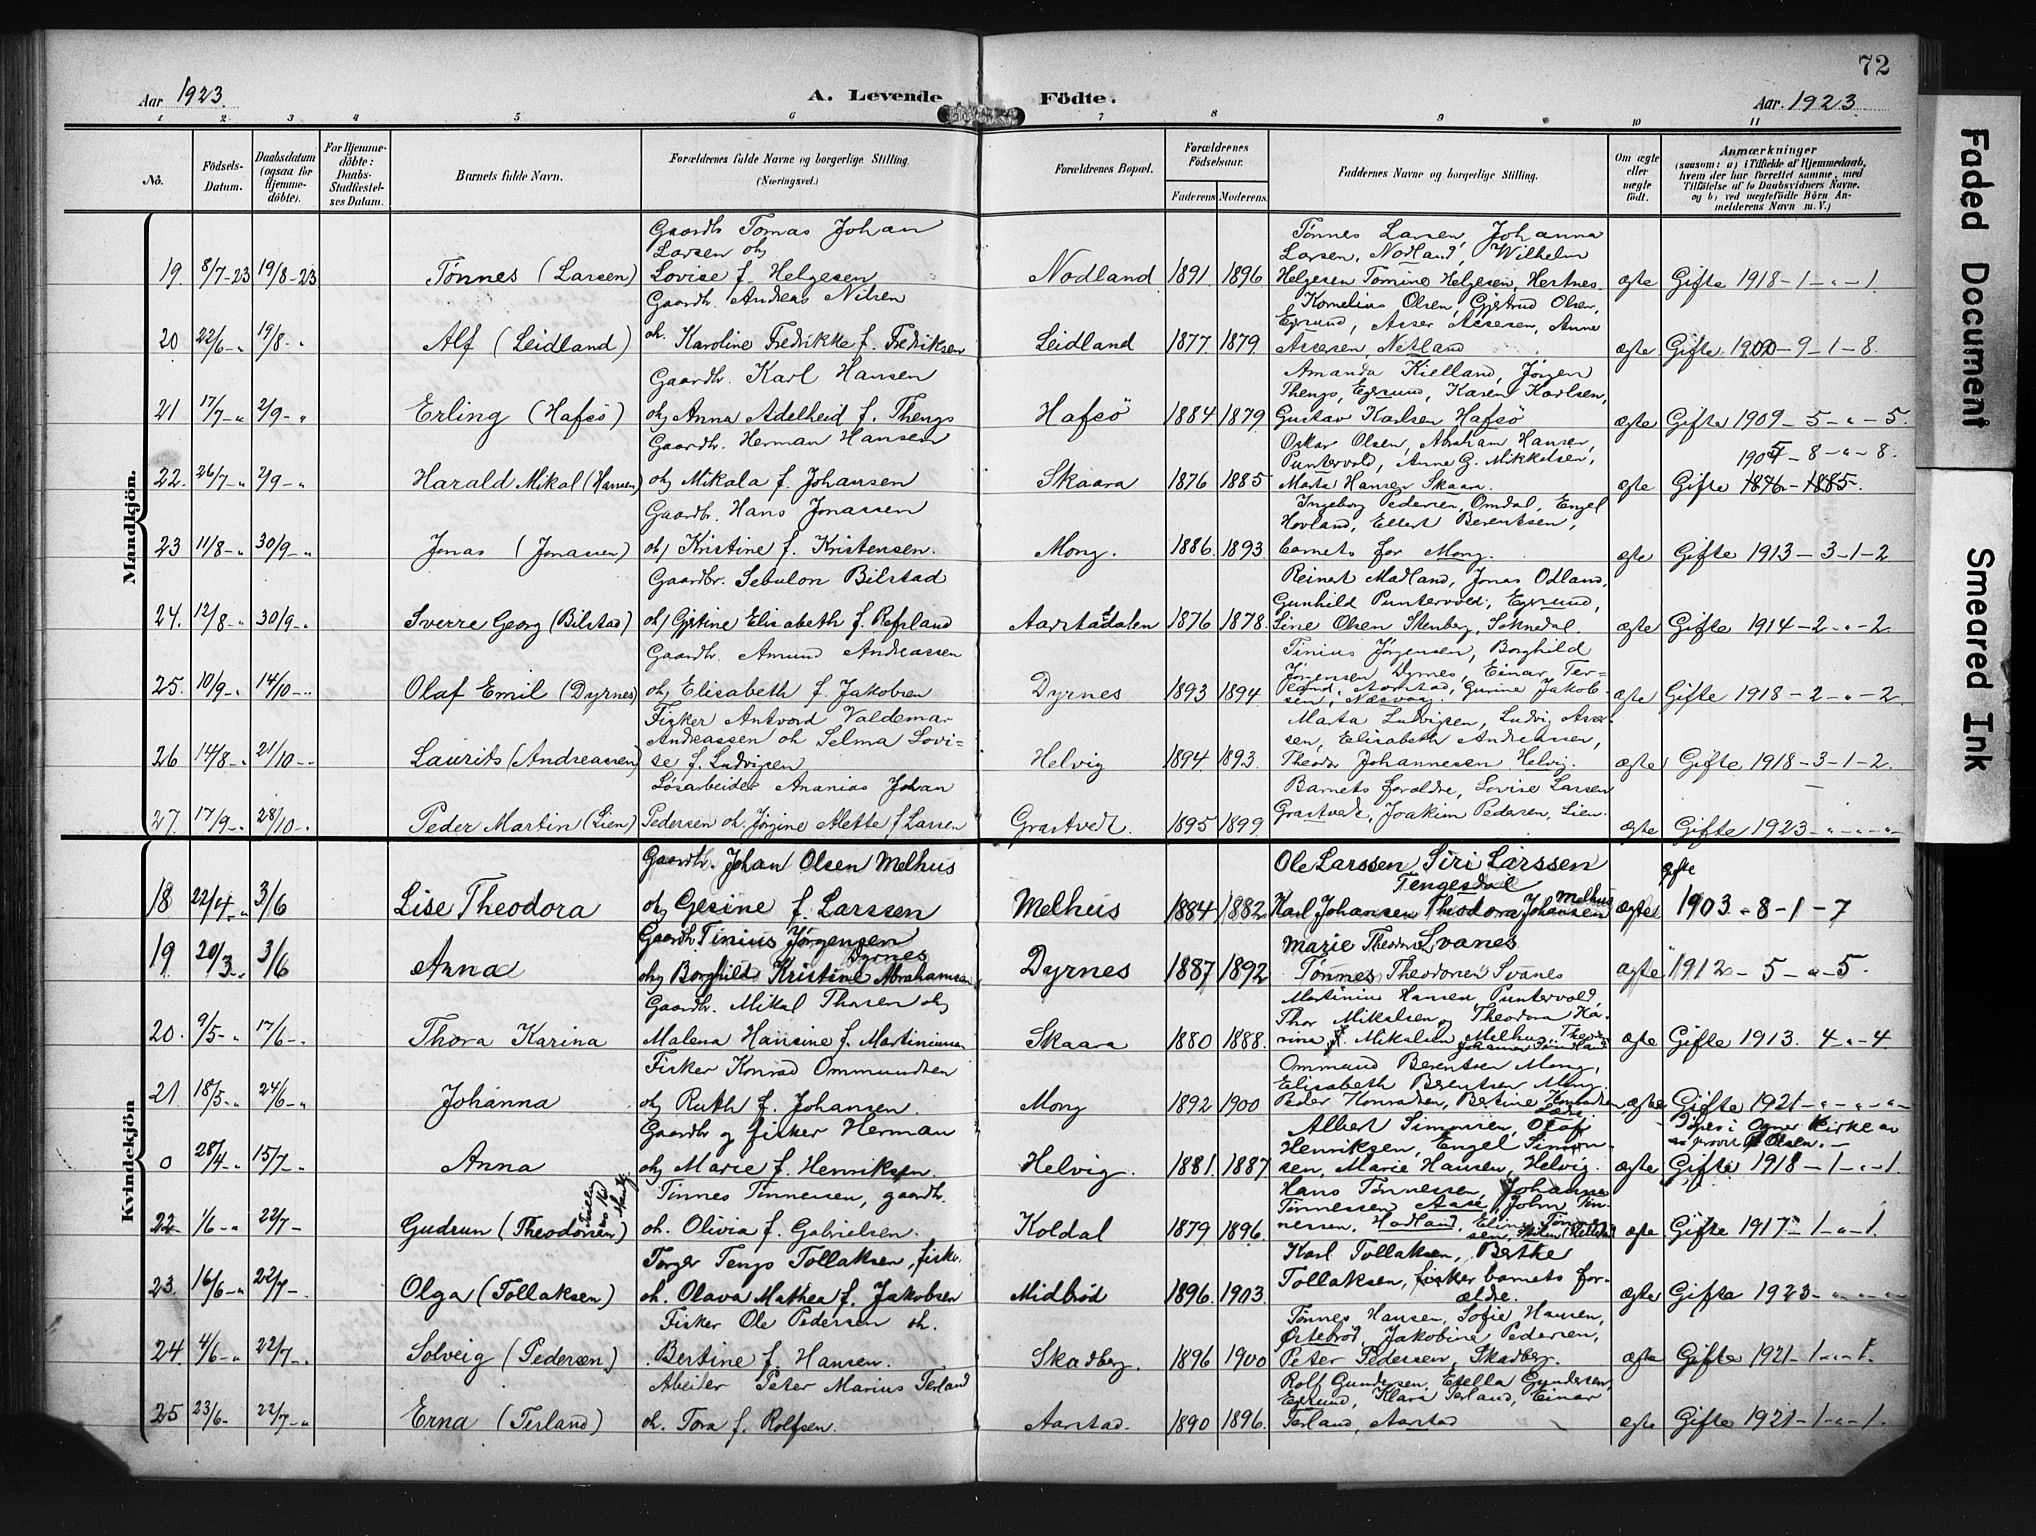 72
Aar 1923.
A. Levende
Födte.
Aar. 1923
1 2 3 4 5 6 7 8 9 10 11
No.
Födsels-Datum.
Daabsdatum (ogsaa for Hjemmedöbte).
For Hjemmedöbte: Daabs-Stadfæstelses Datum.
Barnets fulde Navn.
Forældrenes fulde Navne og borgerlige Stilling. (Næringsvei.)
Forældrenes Bopæl.
Forældrenes Födselsaar.
Faderens Moderens
Faddernes Navne og borgerlige Stilling.
Om ægte eller uægte födt.
Anmærkninger
(saasom: a) i Tilfælde af Hjemmedaab, hvem der har forrettet samme, med Tilföielse af to Daabsvidners Navne. og b) ved uægtefödte Börn Anmelderens Navn m. V.)
Mandkjön.
Gaardbr Tomas Johan
Larsen og
19. 8/7-23 19/8-23 Tønnes (Larsen) Lovise f. Helgesen Nodland 1891. 1896
Tønnes Larsen, Johanna
Larsen, Nodland, Wilhelm
Helgesen Tomine Helgesen, Hestnes. ægte Gifte 1918-1-"-1
Gaardbr. Andreas Nilsen
20 22/6-" 19/8-" Alf (Leidland) og. Karoline Fredrikke f. Fredriksen Leidland 1877. 1879.
Kornelius Olsen, Gjetrud Olsen,
Egrsund, Asser Assersen, Anne
Assersen, Netland ægte Gifte. 1900-9-1-8.
Gaardbr. Karl Hansen
21 17/7-" 2/9-" Erling (Hafsö) og Anna Adelheid f. Thengs Hafsö 1884 1879
Amanda Kielland, Jörgen
Thengs, Egrsund, Karen Karlsen,
Gustav Karlsen, Hafsö ægte Gifte 1909-5-"-5.
Gaardbr. Herman Hansen
22. 26/7-" 2/9-" Harald Mikal (Hansen) og Mikala f. Johansen Skaara 1876 1885
Oskar Olsen, Abraham Hansen,
Puntervold, Anne G. Mikkelsen,
Marta Hansen Skaara.
1905-8-"-8.
ægte Gifte 1876-1885.
Gaardbr. Hans Jonassen
23 11/8-" 30/9-" Jonas (Jonassen) og Kristine f. Kristensen. Mong. 1886. 1893
Ingeborg Pedersen, Omdal, Engel
Hovland, Ellert Berentsen,
barnets far Mong. ægte Gifte 1913-3-1-2
Gaardbr. Sebulon Bilstad
24. 12/8-" 30/9-" Sverre Georg (Bilstad) og Gjertine Elisabeth f. Refsland Aarstaddalen 1876 1878.
Reinert Madland, Jonas Odland,
Gunhild Puntervold, Egrsund,
Sine Olsen Stenberg, Soknedal. ægte Gifte 1914-2-"-2.
Gaardbr. Amund Andreassen
25. 10/9-" 14/10-" Olaf Emil (Dyrnes) og Elisabeth f. Jakobsen Dyrnes 1893 1894.
Tinius Jørgensen, Borghild
Jørgensen Dyrnes, Einar Ter-
land, Aarstad, Gurine Jakob-
sen, Næsvaag. ægte Gifte 1918-2-"-2.
Fisker Antvord Valdemar
Andreassen og Selma Lovi-
26 14/8-" 21/10-" Laurits (Andreassen) se f. Ludvigsen Helvig 1894. 1893.
Marta Ludvigsen, Ludvig Asser-
sen, Elisabeth Andreassen,
Theodor Johannessen Helvig. ægte Gifte 1918-3-1-2.
Løsarbeider Ananias Johan
27. 17/9-" 28/10-" Peder Martin (Lien) Pedersen og. Jørgine Alette f. Larsen Grastvedt. 1895 1899.
Barnets foreldre, Lovise Larsen
Grastvedt, Joakim Pedersen, Lien. ægte Gifte 1923-"-"-"-
Kvindekjön
Gaardbr. Johan Olsen Melhus
18 22/4-" 3/6 Lise Theodora og Gesine f. Larssen Melhus 1884 1882
Ole Larssen Siri Larssen
Tengesdal
Karl Johansen Theodora Johansen Melhus ægte
gifte
1903-8-1-7
Gaardbr. Tinius Jørgensen
Dyrnes
19 20/3-" 3/6 Anna og Borghild Kristine Abrahamsen Dyrnes 1887 1892
Marie Theodora Svanes
Tønnes Theodorsen Svanes ægte 1912-5-"-5.
Gaardbr. Mikal Thorsen og
20. 9/5-" 17/6-" Thora Karina Malena Hansine f. Martiniusen Skaara 1880 1888.
Martinius Hansen, Puntervold,
Thor Mikalsen og Theodora Ka-
rina Mikalsen Melhus, ægte Gifte 1913. 4-"-4.
Fisker Konrad Ommundsen
21. 18/5-" 24/6-" Johanna og Ruth f. Johansen. Mong 1892 1900
Ommund Berentsen Mong,
Elisabeth Berentsen Mong.
Peder Konradsen, Betine Konradsen ægte Gifte 1921-"-"-"-
Gaardbr og fisker Herman
0 28/4-" 15/7-" Anna og Marie f. Henriksen. Helvig. 1881. 1887
Albert Simonsen, Olaf
Henriksen, Engel Simon-
sen, Marie Hansen, Helvig.
Døpes i Ogner Kirke av
sogneprest Olsen.-
ægte Gifte 1918-1-"-1
Tønnes Tønnessen, gaardbr.
22 1/6-" 22/7-" Gudrun (Theodorsen) og. Olivia f. Gabrielsen. Koldal 1879 1896.
Hans Tønnessen, Johanna
Tønnessen Aase, John Tøn-
nessen, Hadland, ægte Gifte 1917-1-"-1.
Torger Tengs Tollaksen, fisker
23. 16/6-" 22/7-. Olga (Tollaksen) og. Olava Mathea f. Jakobsen Midbrød 1896. 1903.
Karl Tollaksen, Berthe
Tollaksen, fisker barnets for-
ældre. ægte Gifte 1923-"-"-"-
Fisker Ole Pedersen og.
24. 4/6-" 22/7-. Solveig (Pedersen) Bertine f. Hansen. Skadberg. 1896 1900
Tønnes Hansen, Sofie Hansen,
Østebrød, Jakobine Pedersen,
Peter Pedersen, Skadberg. ægte Gifte 1921-1-"-1.
Abeider Peter Marius Terland
25 23/6- 22/7-" Erna (Terland) og. Tora f. Rolfsen. Aarstad. 1890 1896.
Rolf Gundersen, Estella Gundersen,
Egrsund, Klara Terland, Einar
Terland, Aarstad ægte Gifte 1921-1-"-1.
Faded Document
Smeared Ink